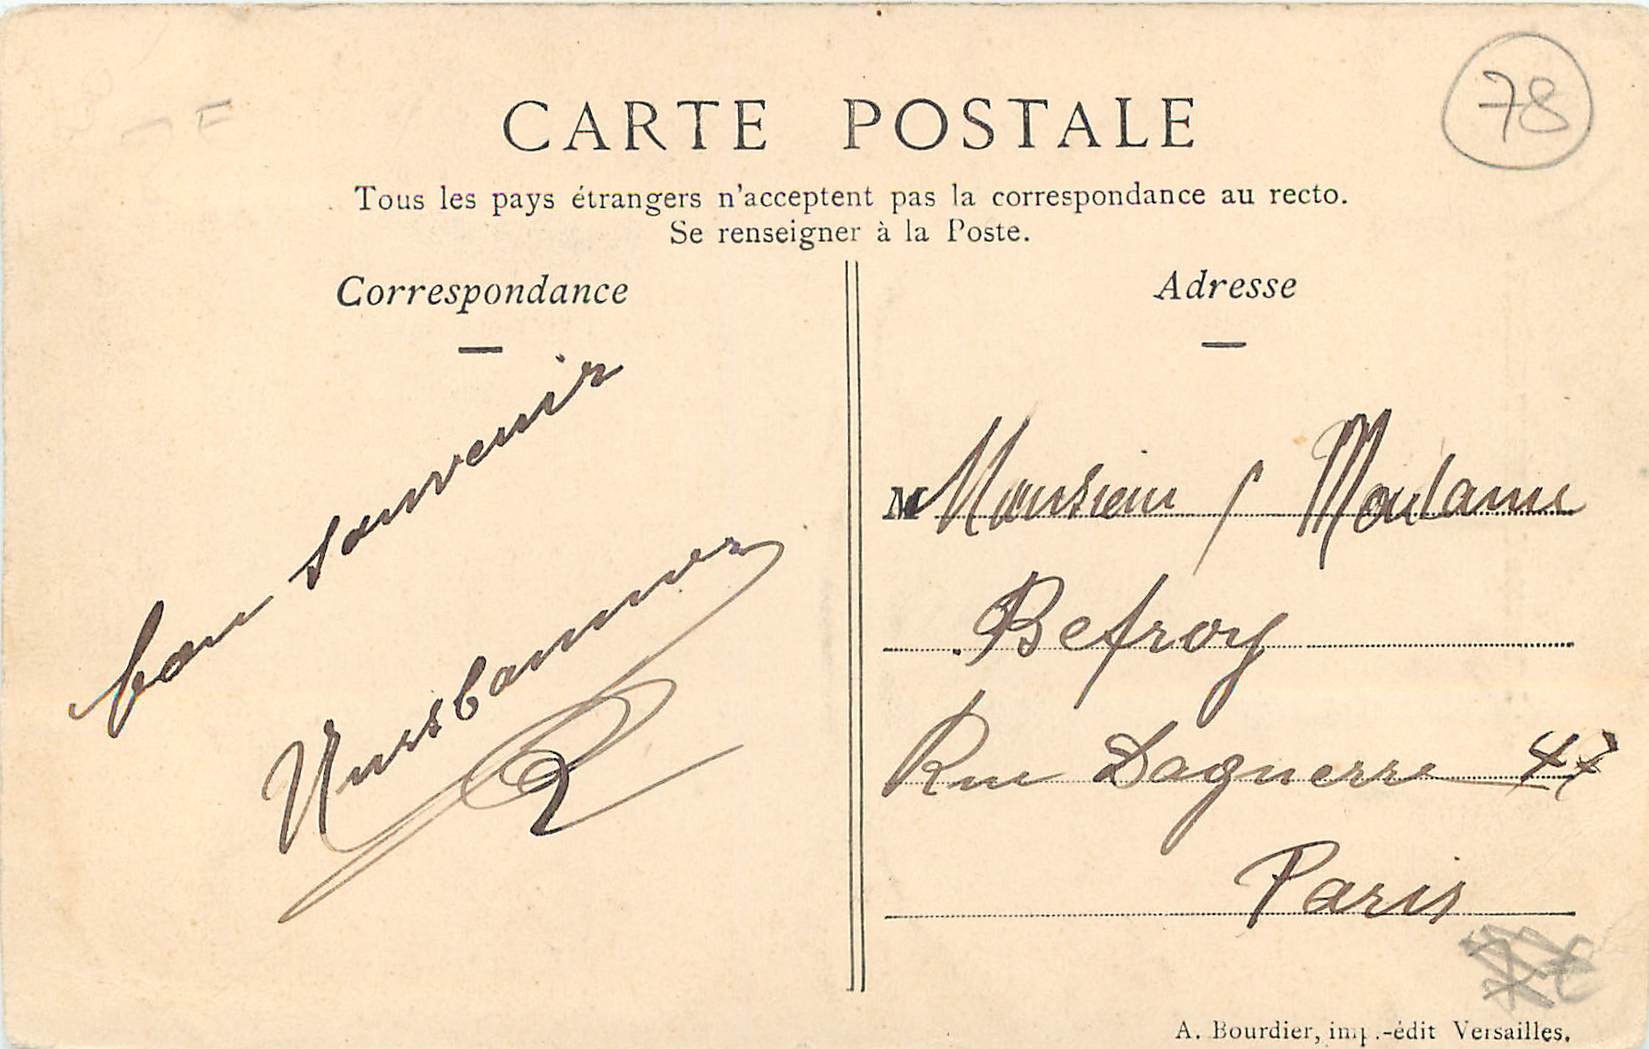 78
CARTE POSTALE
Tous les pays étrangers n'acceptent pas la correspondance au recto.
Se renseigner à la Poste.
Correspondance
bon souvenir
Adresse
M Monsieur / Madame
Befroy
Rue Daguerre 47
Paris
A. Bourdier, imp.-édit Versailles.